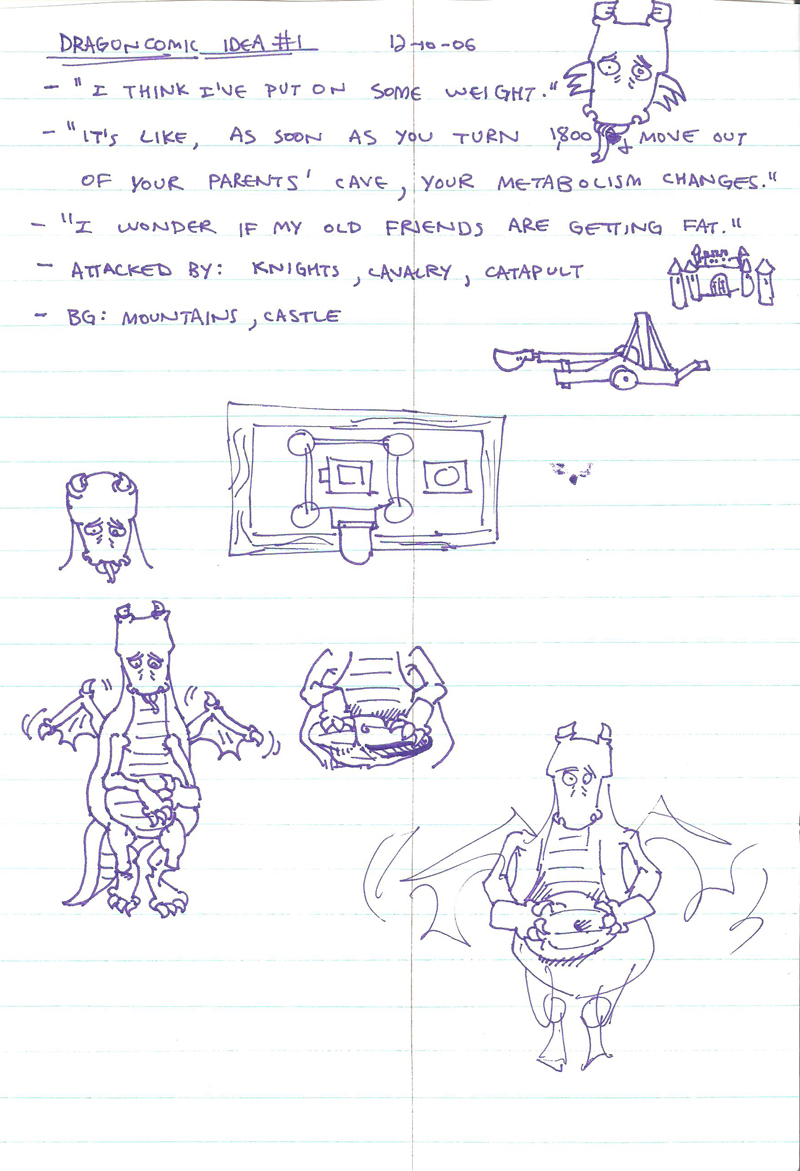 DRAGON COMIC IDEA #1 12-10-06
- "I THINK I'VE PUT ON SOME WEIGHT."
- "IT'S LIKE, AS SOON AS YOU TURN 1,800 + MOVE OUT
OF YOUR PARENTS' CAVE, YOUR METABOLISM CHANGES."
- "I WONDER IF MY OLD FRIENDS ARE GETTING FAT."
- ATTACKED BY: KNIGHTS, CAVALRY, CATAPULT
- BG: MOUNTAINS, CASTLE